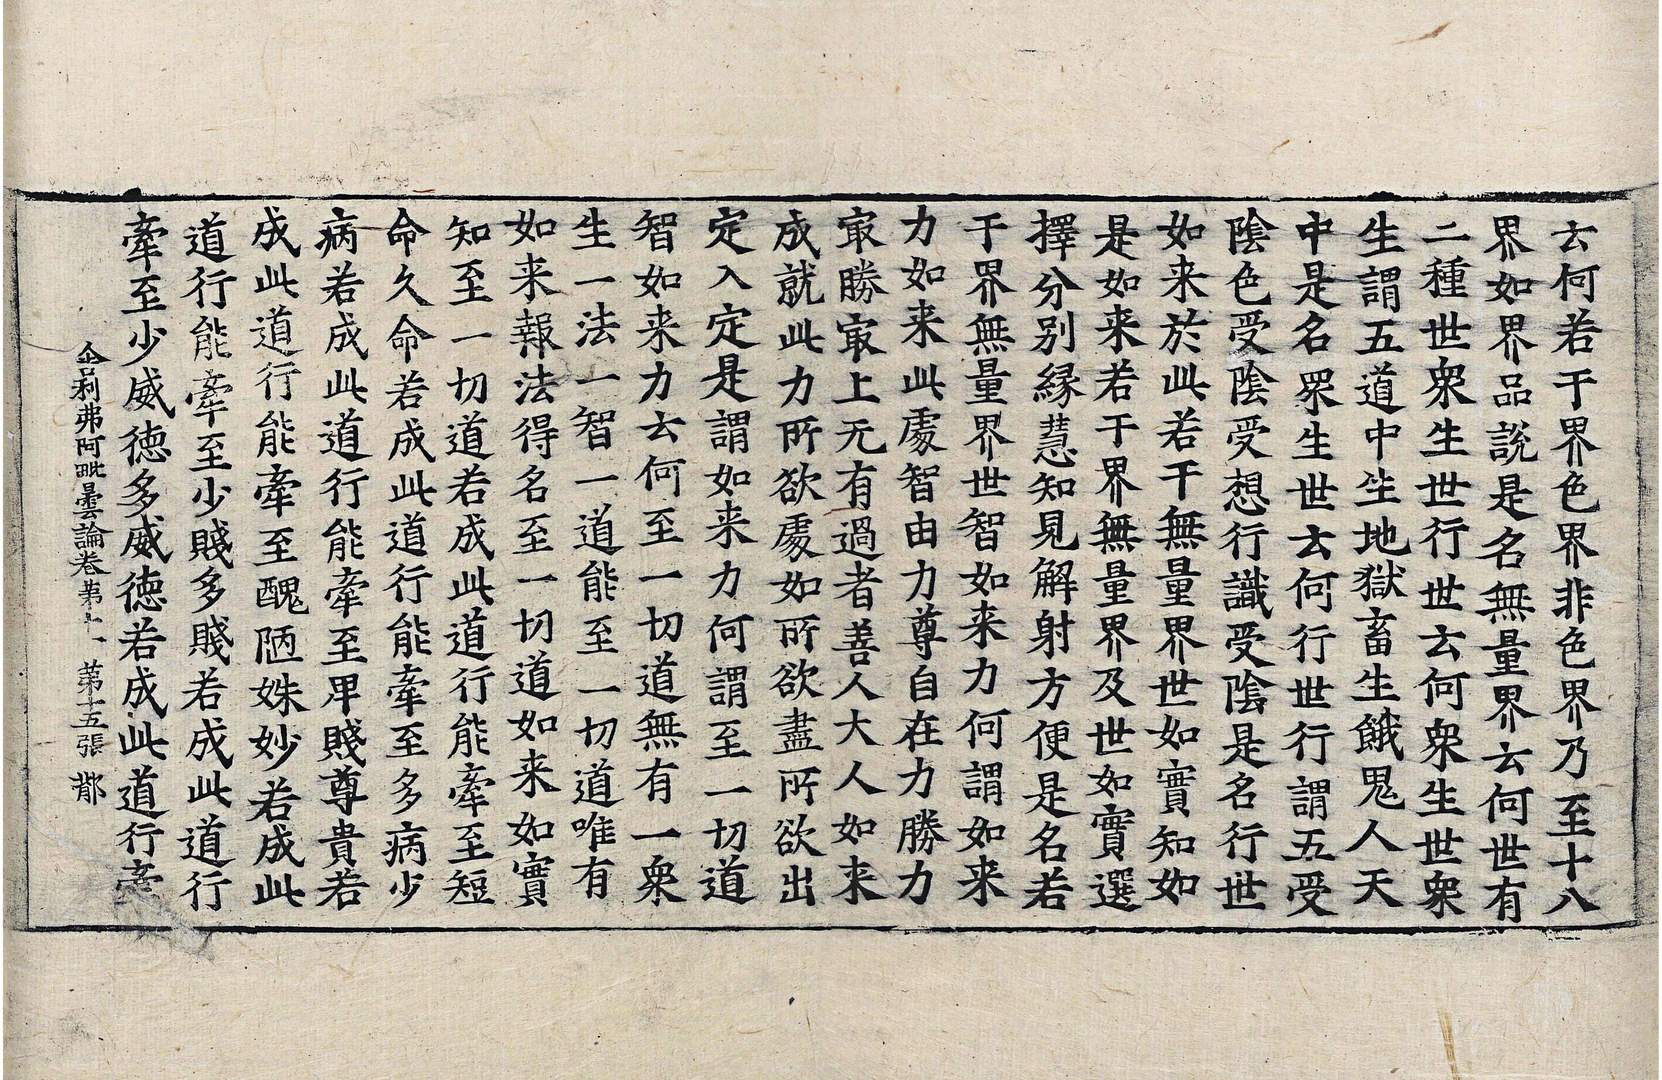 云何若干界色界非色界乃至十八
界如界品說是名無量界云何世有
二種世衆生世行世云何衆生世衆
生謂五道中生地獄畜生餓鬼人天
中是名衆生世云何行世行謂五受
陰色受陰受想行識受陰是名行世
如来於此若干無量界世如實知如
是如来若干界無量界及世如實選
擇分别緣慧知見解射方便是名若
干界無量界世智如来力何謂如来
力如来此處智由力尊自在力勝力
冣勝冣上无有過者善人大人如来
成就此力所欲處如所欲盡所欲出
定入定是謂如来力何謂至一切道
智如来力云何至一切道無有一衆
生一法一智一道能至一切道唯有
如来報法得名至一切道如来如實
知至一切道若成此道行能牽至短
命久命若成此道行能牽至多病少
病若成此道行能牽至卑賤尊貴若
成此道行能牽至醜陋姝妙若成此
道行能牽至少賤多賤若成此道行
牽至少威德多威德若成此道行牽
舍利弗阿毗曇論卷苐十一 苐十五張 鄁